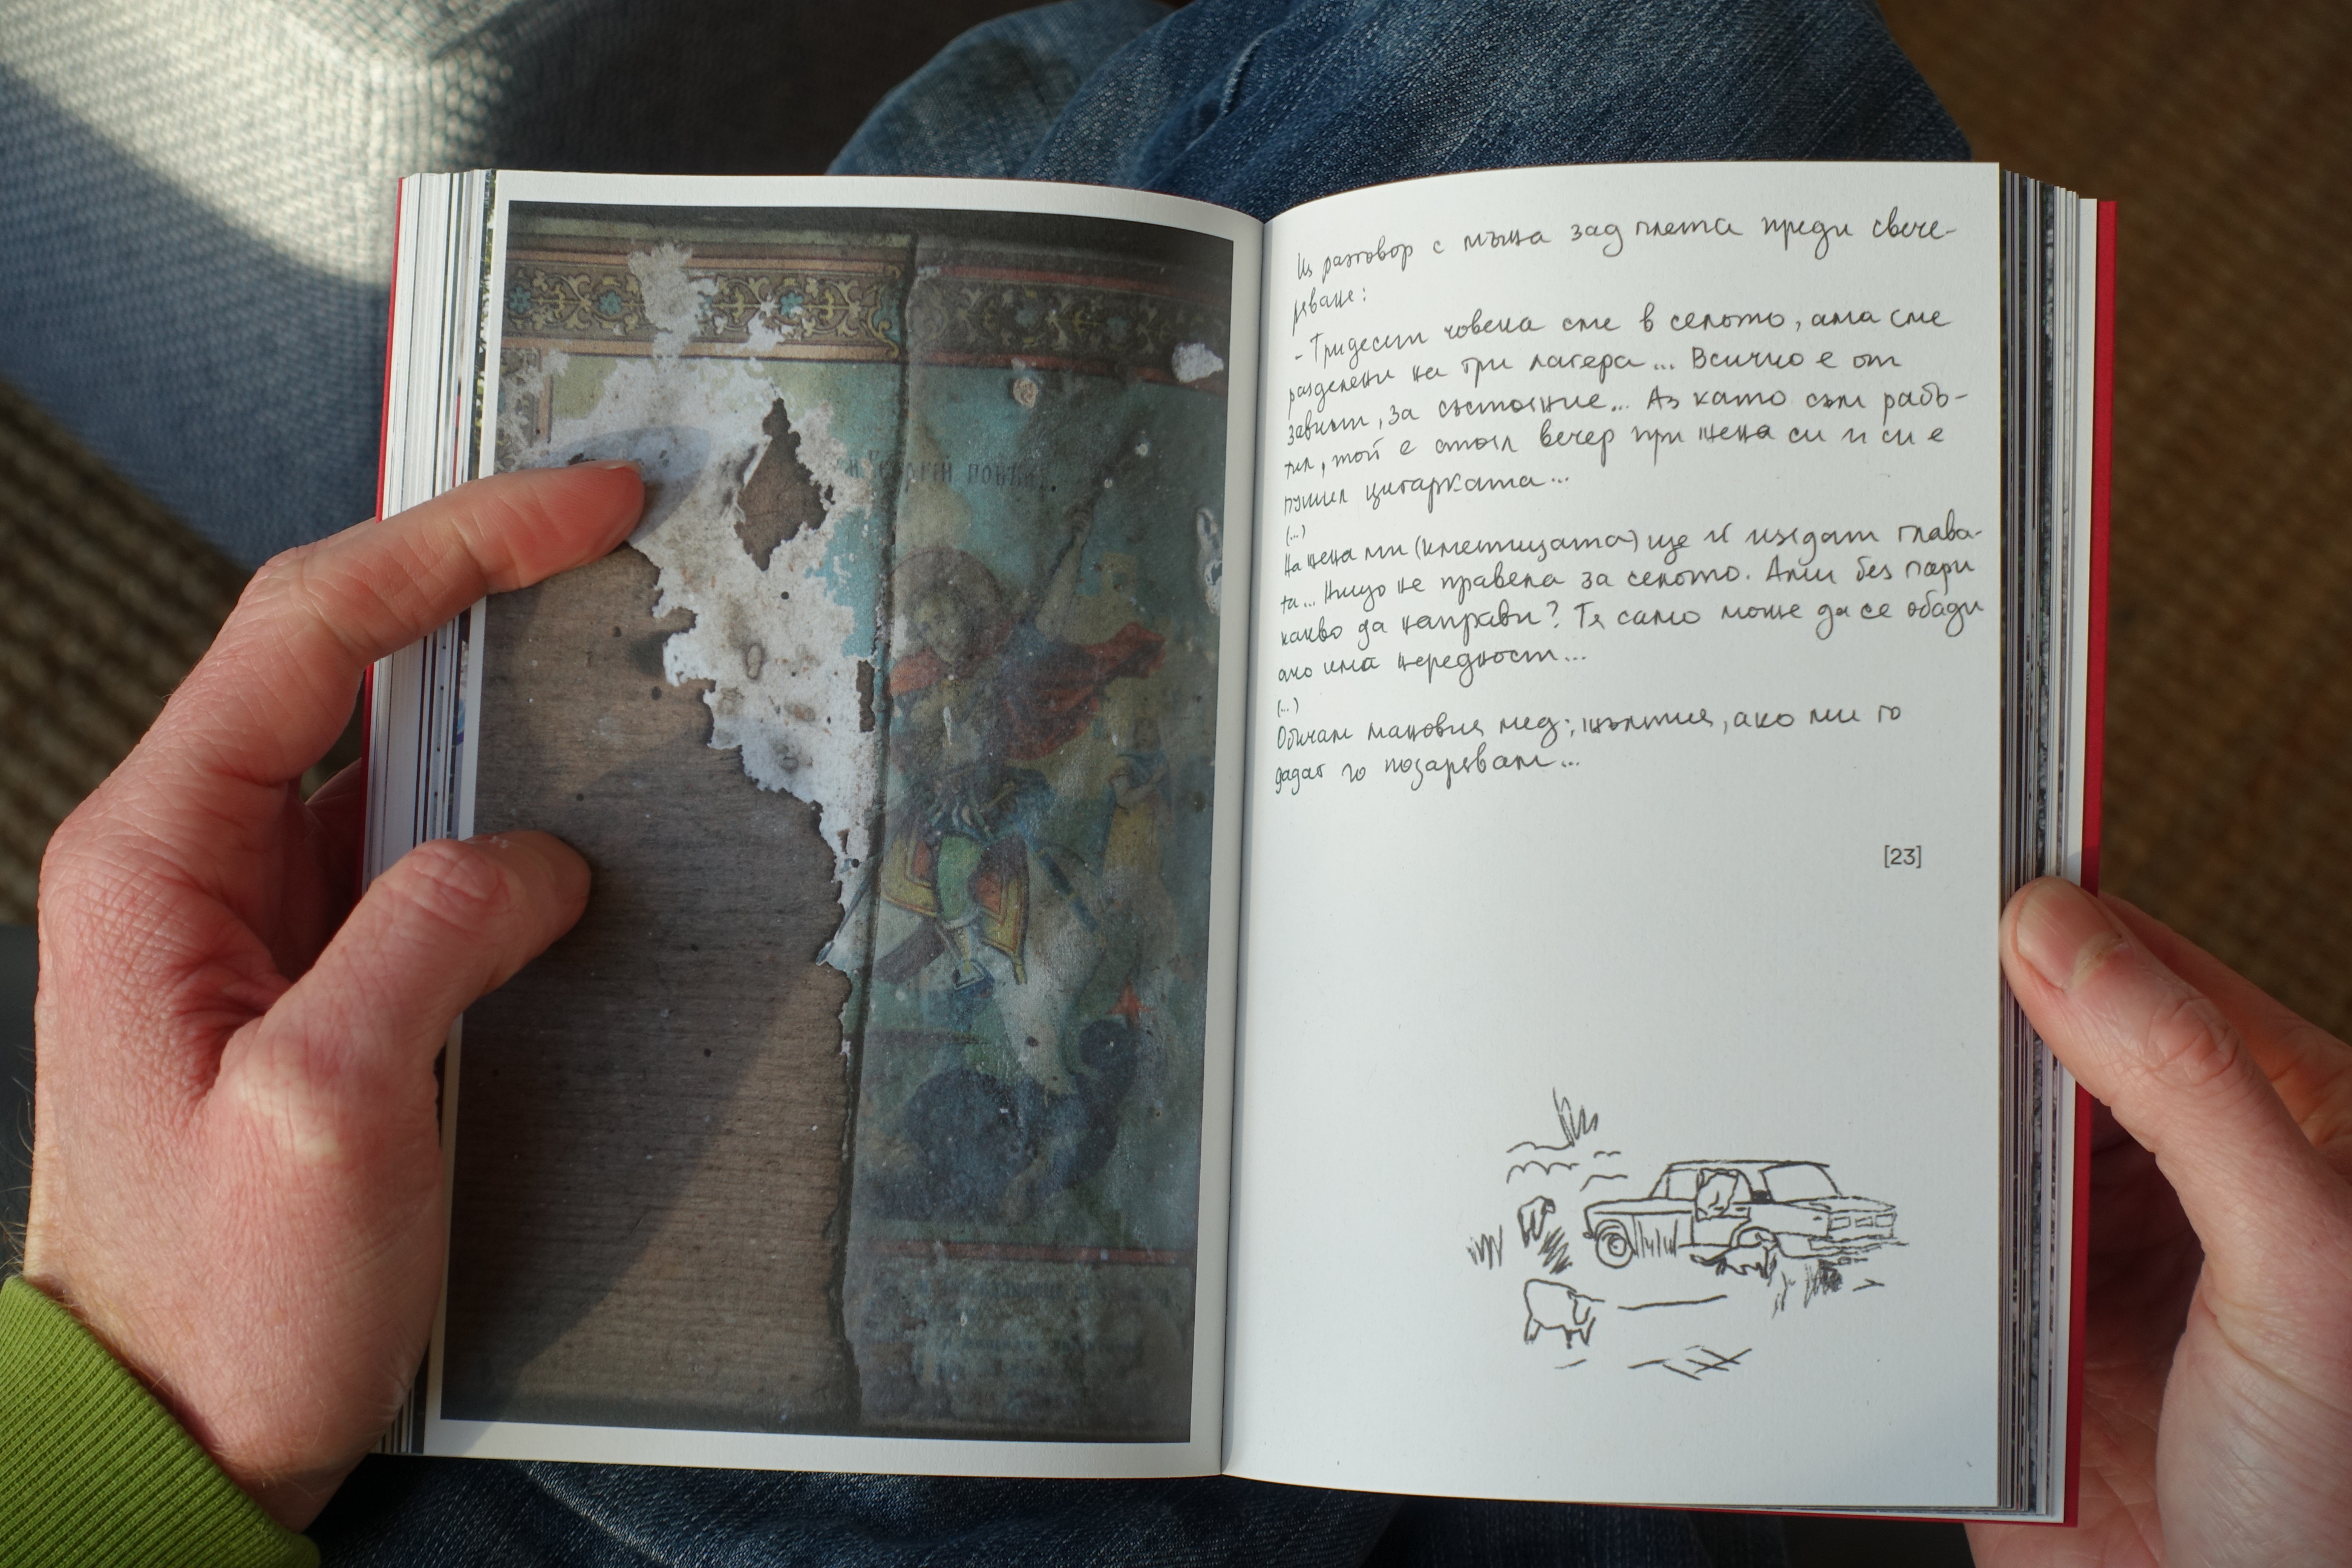 Георгій побѣ
Из разговор с мъжа зад плета преди свече-
ряване:
- Тридесет човека сме в селото, ама сме
разделени на три лагера... Всичко е от
завист, за състояние... Аз като съм рабо-
тил, той е стоял вечер при жена си и си е
пушил цигарката...
(...)
На жена ми (кметицата) ще ѝ изядат глава-
та... Нищо не правела за селото. Ами без пари
какво да направи? Тя само може да се обади
ако има нередност...
(...)
Обичам мановия мед; жълтия, ако ми го
дадат го позарявам...
[23]